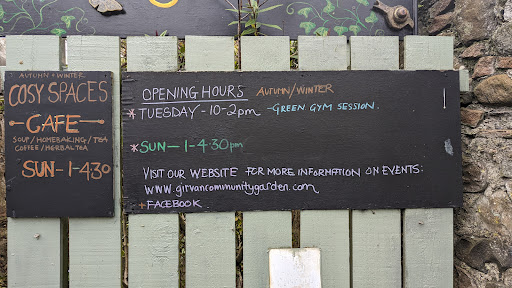 AUTUMN + WINTER
COSY SPACES
CAFE
SOUP/HOMEBAKING/TEA
COFFEE/HERBAL TEA
SUN-1-430
OPENING HOURS AUTUMN/WINTER
* TUESDAY-10-2pm -GREEN GYM SESSION.
* SUN-1-4·30pm
VISIT OUR WEBSITE FOR MORE INFORMATION ON EVENTS:
www.girvancommunitygarden.com
+ FACEBOOK